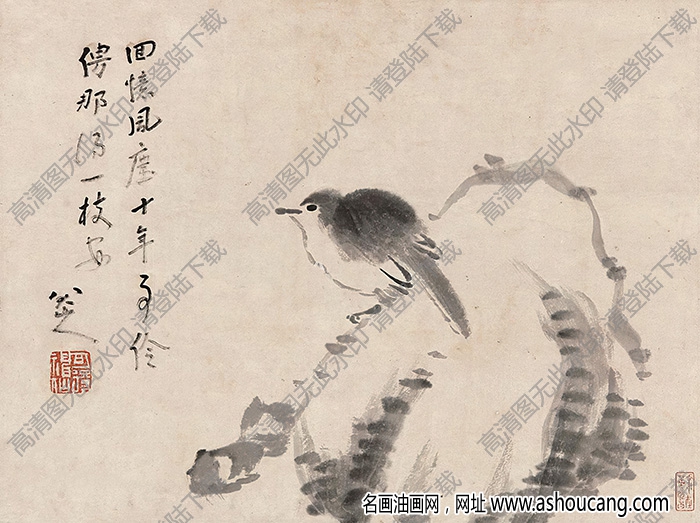 回憶風塵十年事伶
俜那得一枝安
八大
高清图无此水印 请登陆下载
高清图无此水印 请登陆下载
高清图无此水印 请登陆下载
高清图无此水印 请登陆下载
高清图无此水印 请登陆下载
高清图无此水印 请登陆下载
名画油画网，网址 www.ashoucang.com